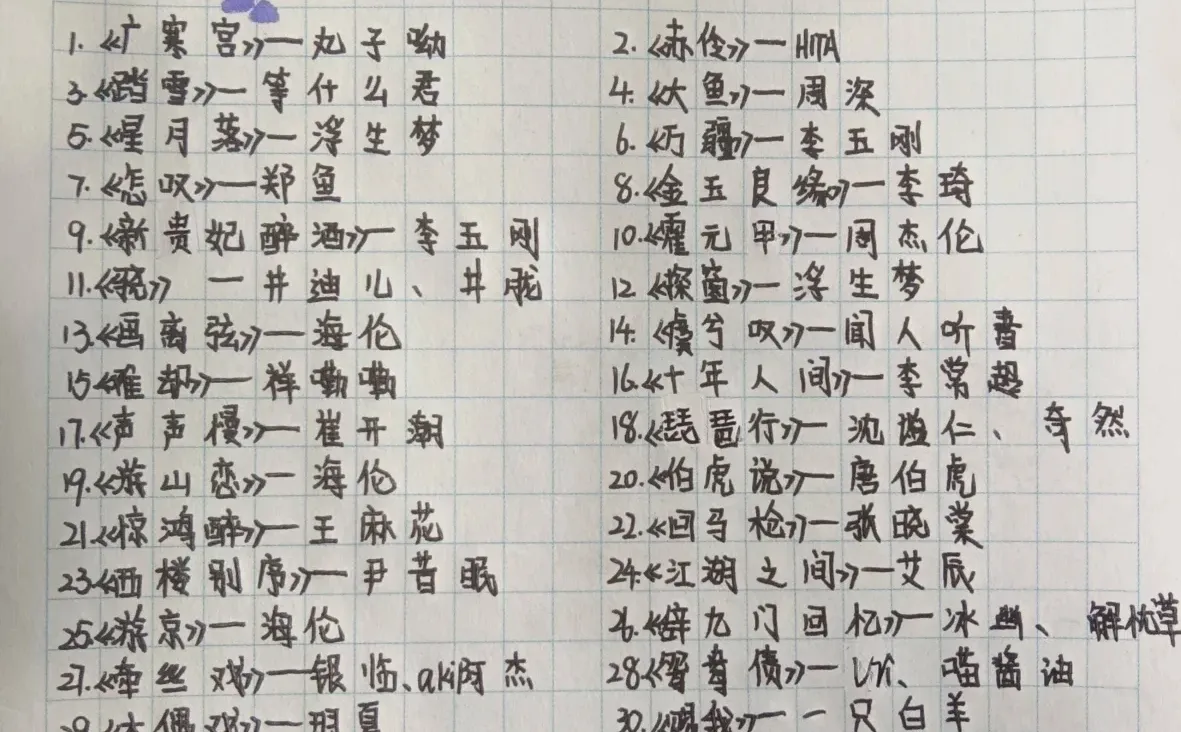 1.《广寒宫》—丸子呦 2.《赤伶》—HITA
3.《踏雪》—等什么君 4.《大鱼》—周深
5.《星月落》—浮生梦 6.《万疆》—李玉刚
7.《怎叹》—郑鱼 8.《金玉良缘》—李琦
9.《新贵妃醉酒》—李玉刚 10.《霍元甲》—周杰伦
11.《骁》—井迪儿、井胧 12.《探窗》—浮生梦
13.《画离弦》—海伦 14.《虞兮叹》—闻人听書
15《难却》—祥嘞嘞 16.《十年人间》—李常超
17.《声声慢》—崔开潮 18.《琵琶行》—沈谧仁、奇然
19.《游山恋》—海伦 20.《伯虎说》—唐伯虎
21.《惊鸿醉》—王麻花 22.《回马枪》—张晓棠
23《西楼别序》—尹昔眠 24.《江湖之间》—艾辰
25.《游京》—海伦 26.《辞九门回忆》—冰幽、解忱草
27.《牵丝戏》—银临、aki阿杰 28.《眉债》—、喵酱油
29.《木偶戏》—玥夏 30.《赐我》—一只白羊